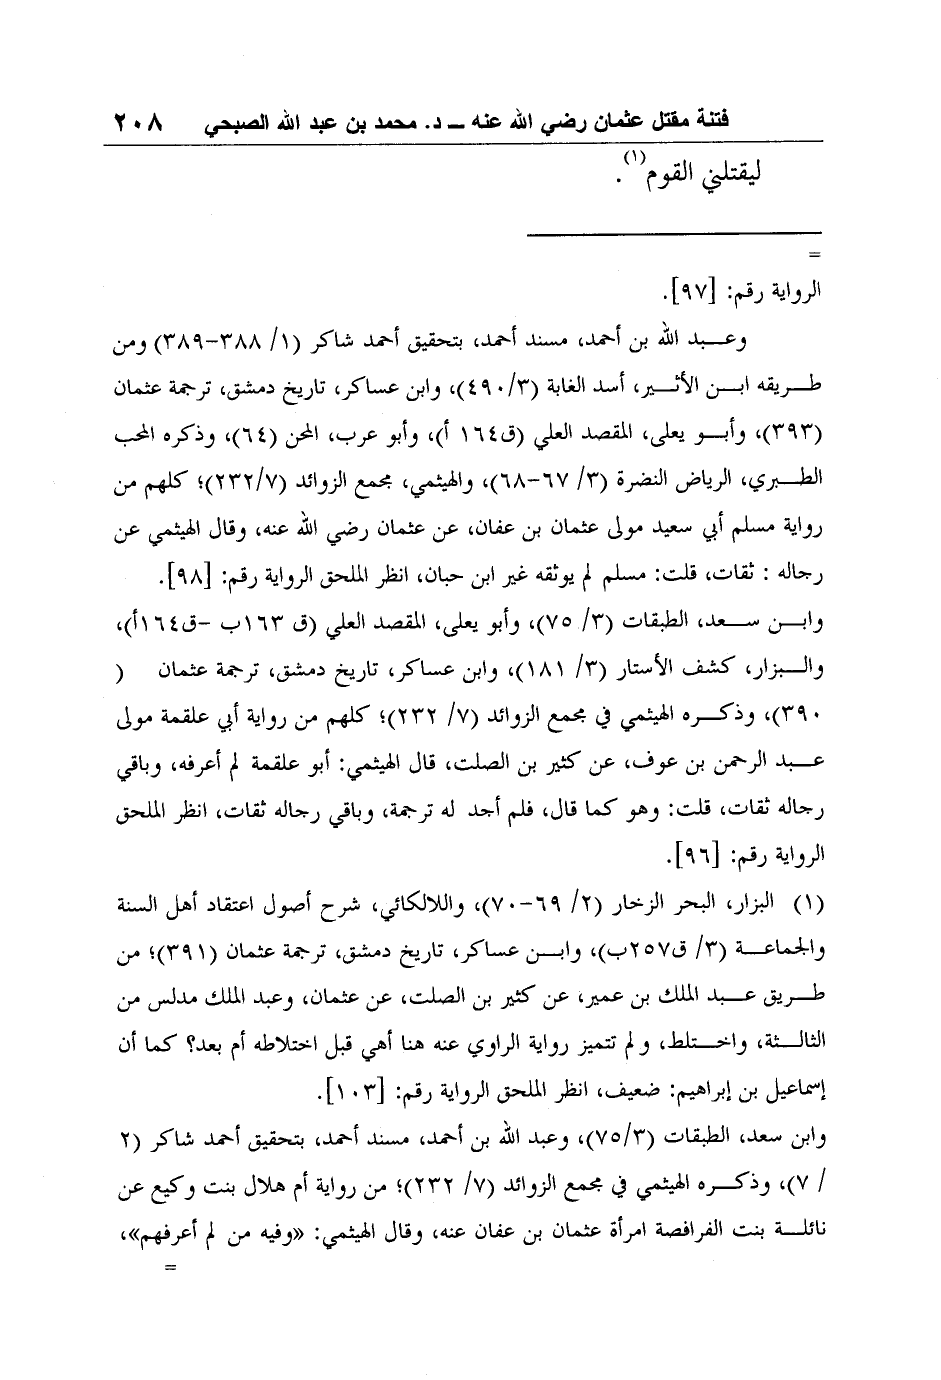 فتنة مقتل عثمان رضي الله عنه ــ د. محمد بن عبد الله الصبحي ٢٠٨
ليقتلني القوم(١).
=
الرواية رقم: [٩٧].
وعـــبد الله بن أحمد، مسند أحمد، بتحقيق أحمد شاكر (١/ ٣٨٨-٣٨٩) ومن
طـــريقه ابـــن الأثـــير، أسد الغابة (٣/ ٤٩٠)، وابن عساكر، تاريخ دمشق، ترجمة عثمان
(٣٩٣)، وأبـــو يعلى، المقصد العلي (ق١٦٤ أ)، وأبو عرب، المحن (٦٤)، وذكره المحب
الطـــبري، الرياض النضرة (٣/ ٦٧-٦٨)، والهيثمي، مجمع الزوائد (٧/ ٢٣٢)؛ كلهم من
رواية مسلم أبي سعيد مولى عثمان بن عفان، عن عثمان رضي الله عنه، وقال الهيثمي عن
رجاله : ثقات، قلت: مسلم لم يوثقه غير ابن حبان، انظر الملحق الرواية رقم: [٩٨].
وابـــن ســـعد، الطبقات (٣/ ٧٥)، وأبو يعلى، المقصد العلي (ق ١٦٣ب -ق١٦٤أ)،
والـــبزار، كشف الأستار (٣/ ١٨١)، وابن عساكر، تاريخ دمشق، ترجمة عثمان (
٣٩٠)، وذكـــره الهيثمي في مجمع الزوائد (٧/ ٢٣٢)؛ كلهم من رواية أبي علقمة مولى
عـــبد الرحمن بن عوف، عن كثير بن الصلت، قال الهيثمي: أبو علقمة لم أعرفه، وباقي
رجاله ثقات، قلت: وهو كما قال، فلم أجد له ترجمة، وباقي رجاله ثقات، انظر الملحق
الرواية رقم: [٩٦].
(١) البزار، البحر الزخار (٢/ ٦٩-٧٠)، واللالكائي، شرح أصول اعتقاد أهل السنة
والجماعـــة (٣/ ق٢٥٧ب)، وابـــن عساكر، تاريخ دمشق، ترجمة عثمان (٣٩١)؛ من
طـــريق عـــبد الملك بن عمير، عن كثير بن الصلت، عن عثمان، وعبد الملك مدلس من
الثالـــثة، واخـــتلط، ولم تتميز رواية الراوي عنه هنا أهي قبل اختلاطه أم بعد؟ كما أن
إسماعيل بن إبراهيم: ضعيف، انظر الملحق الرواية رقم: [١٠٣].
وابن سعد، الطبقات (٣/ ٧٥)، وعبد الله بن أحمد، مسند أحمد، بتحقيق أحمد شاكر (٢
/ ٧)، وذكـــره الهيثمي في مجمع الزوائد (٧/ ٢٣٢)؛ من رواية أم هلال بنت وكيع عن
نائلـــة بنت الفرافصة امرأة عثمان بن عفان عنه، وقال الهيثمي: «وفيه من لم أعرفهم»،
=